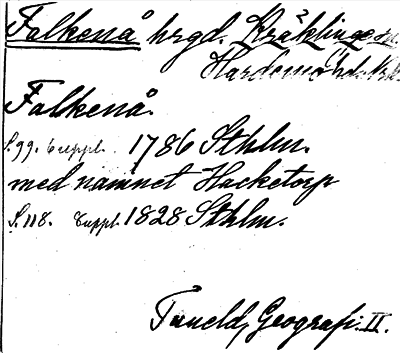 Falkenå hrgd. Kräklinge sn.
Hardemo hd. Nke
Falkenå.
S. 99. Suppl. 1786 Sthlm.
med namnet Hacketorp
S. 118. Suppl. 1828 Sthlm.
Tuneld, Geografi. II.